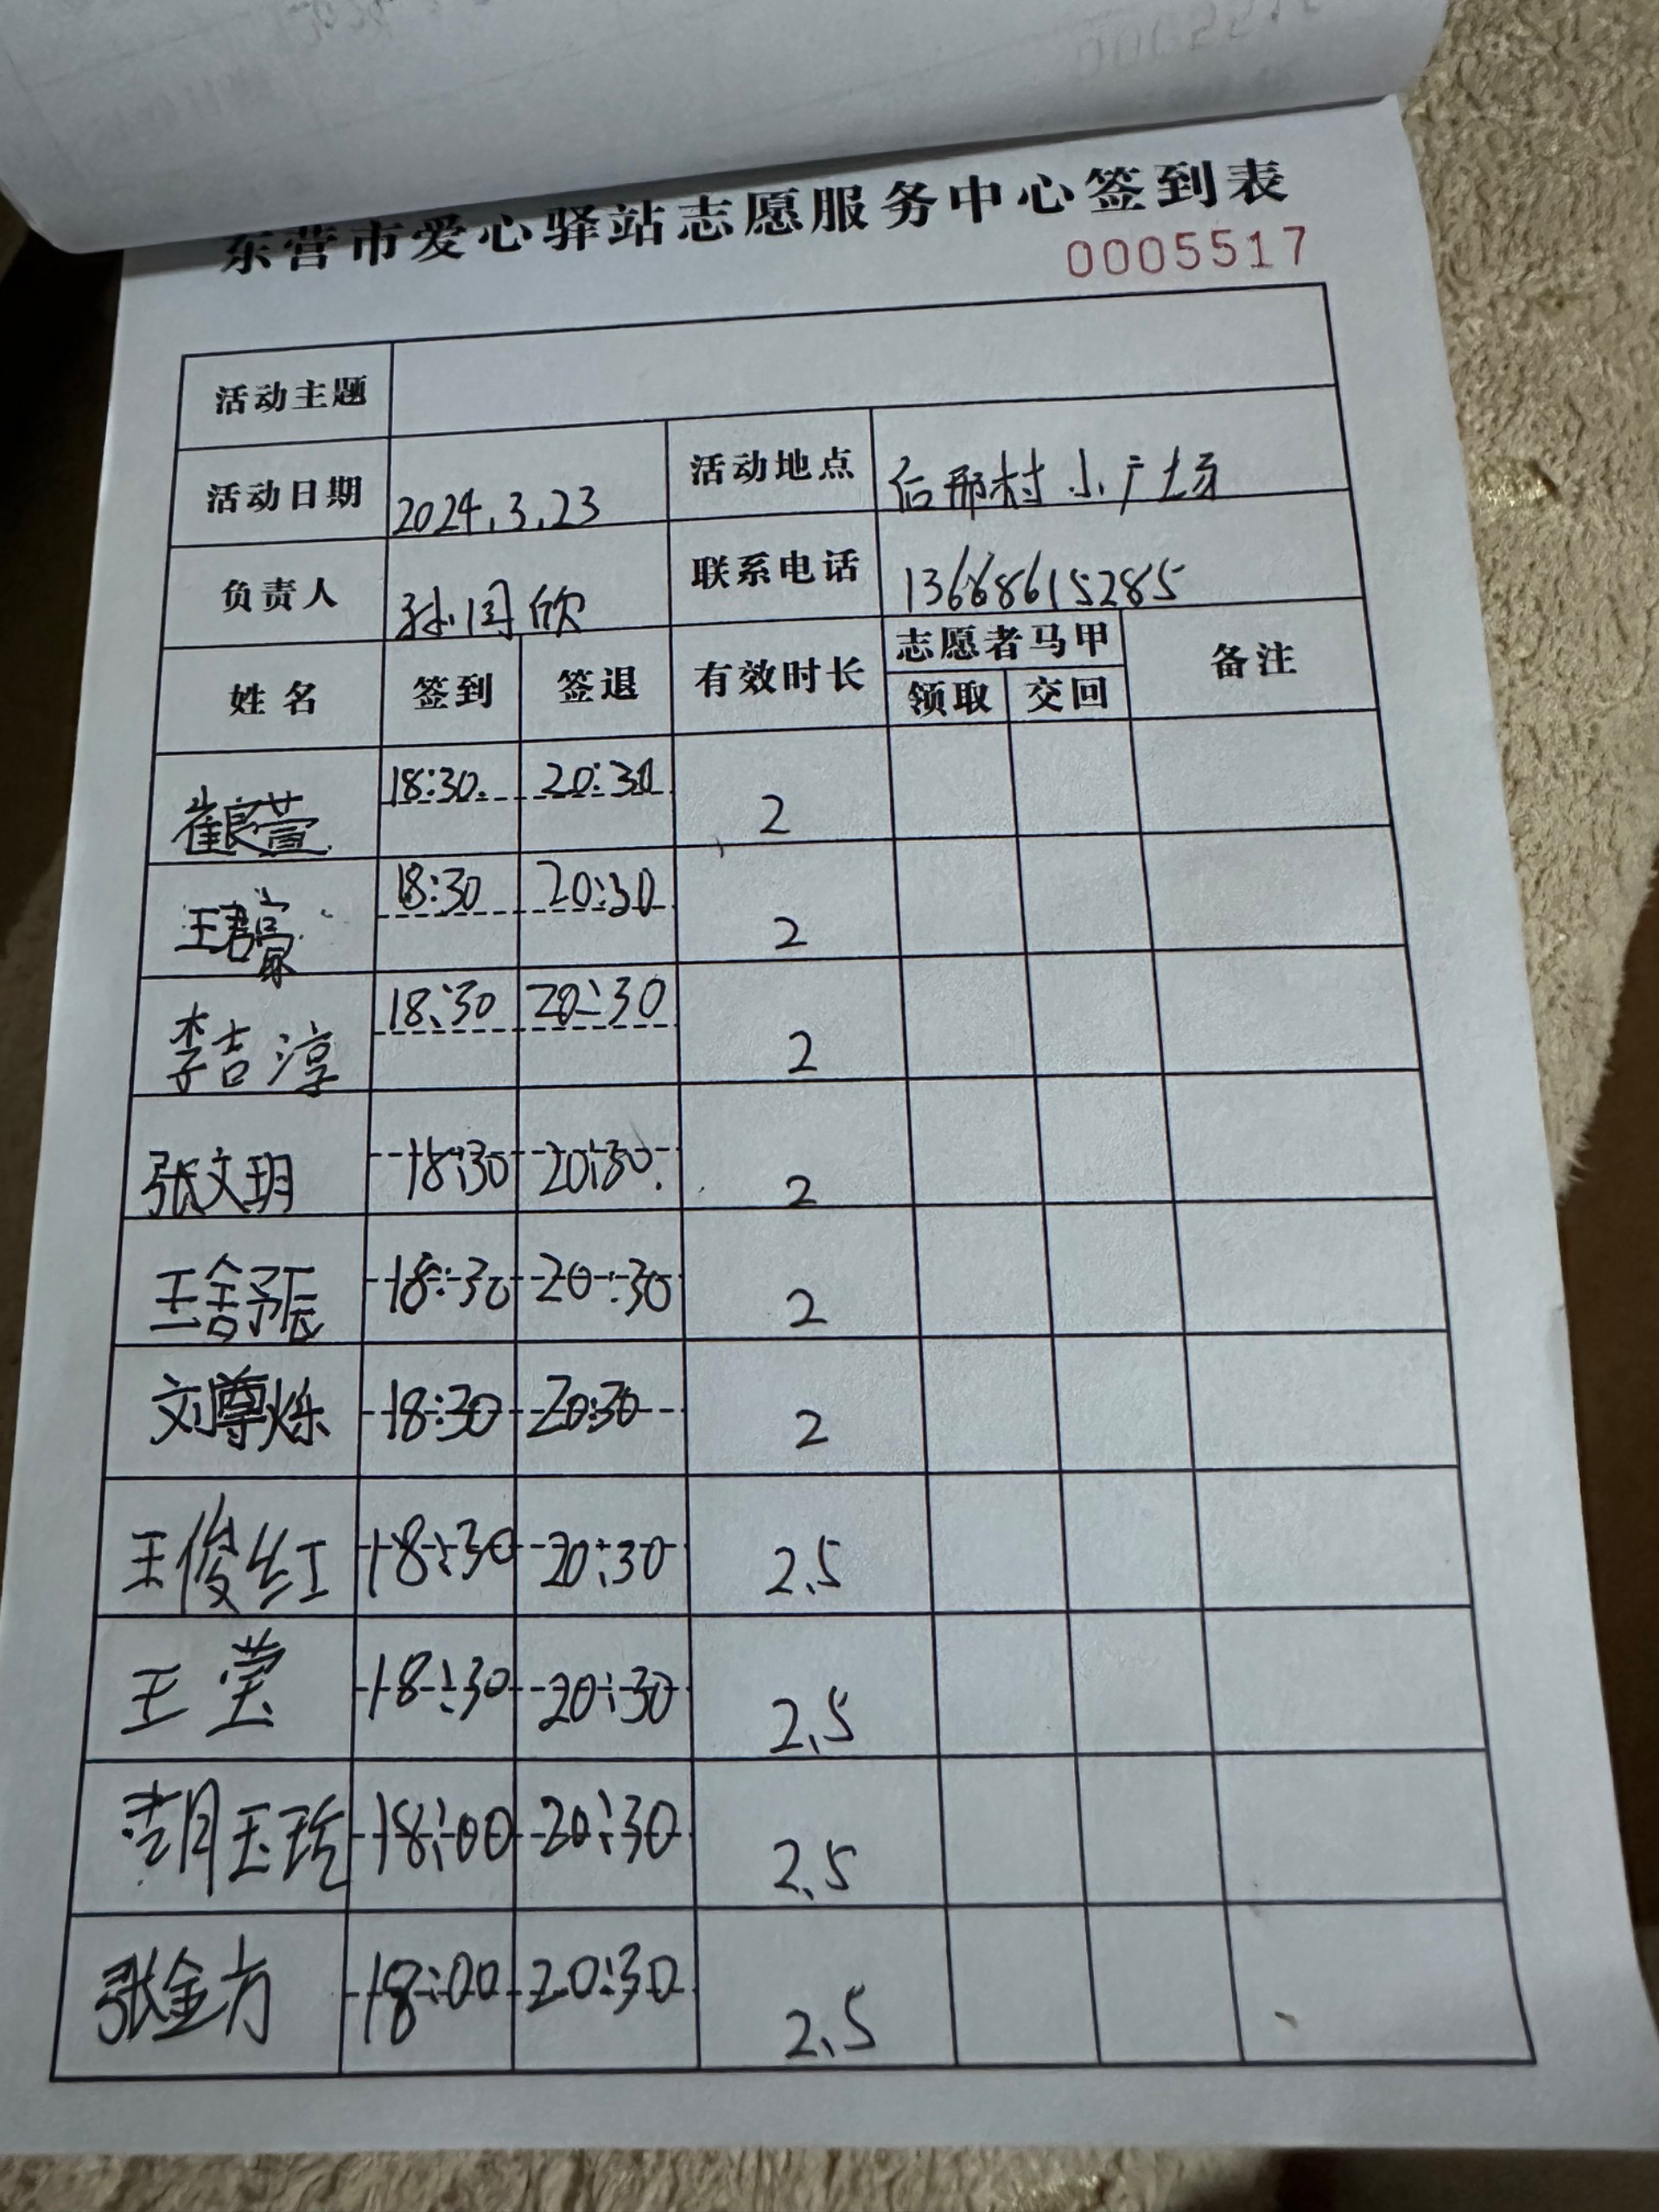 东营市爱心驿站志愿服务中心签到表
0005517
活动主题
活动日期 2024.3.23 活动地点 后邢村小广场
负责人 孙闰欣 联系电话 13668615285
姓名 签到 签退 有效时长 志愿者马甲 备注
领取 交回
崔良萱 18:30 20:30 2
王君 18:30 20:30 2
李吉淳 18:30 20:30 2
张文玥 18:30 20:30 2
王舒辰 18:30 20:30 2
刘尊烁 18:30 20:30 2
王俊红 18:30 20:30 2.5
王莹 18:30 20:30 2.5
胡玉玲 18:00 20:30 2.5
张金方 18:00 20:30 2.5